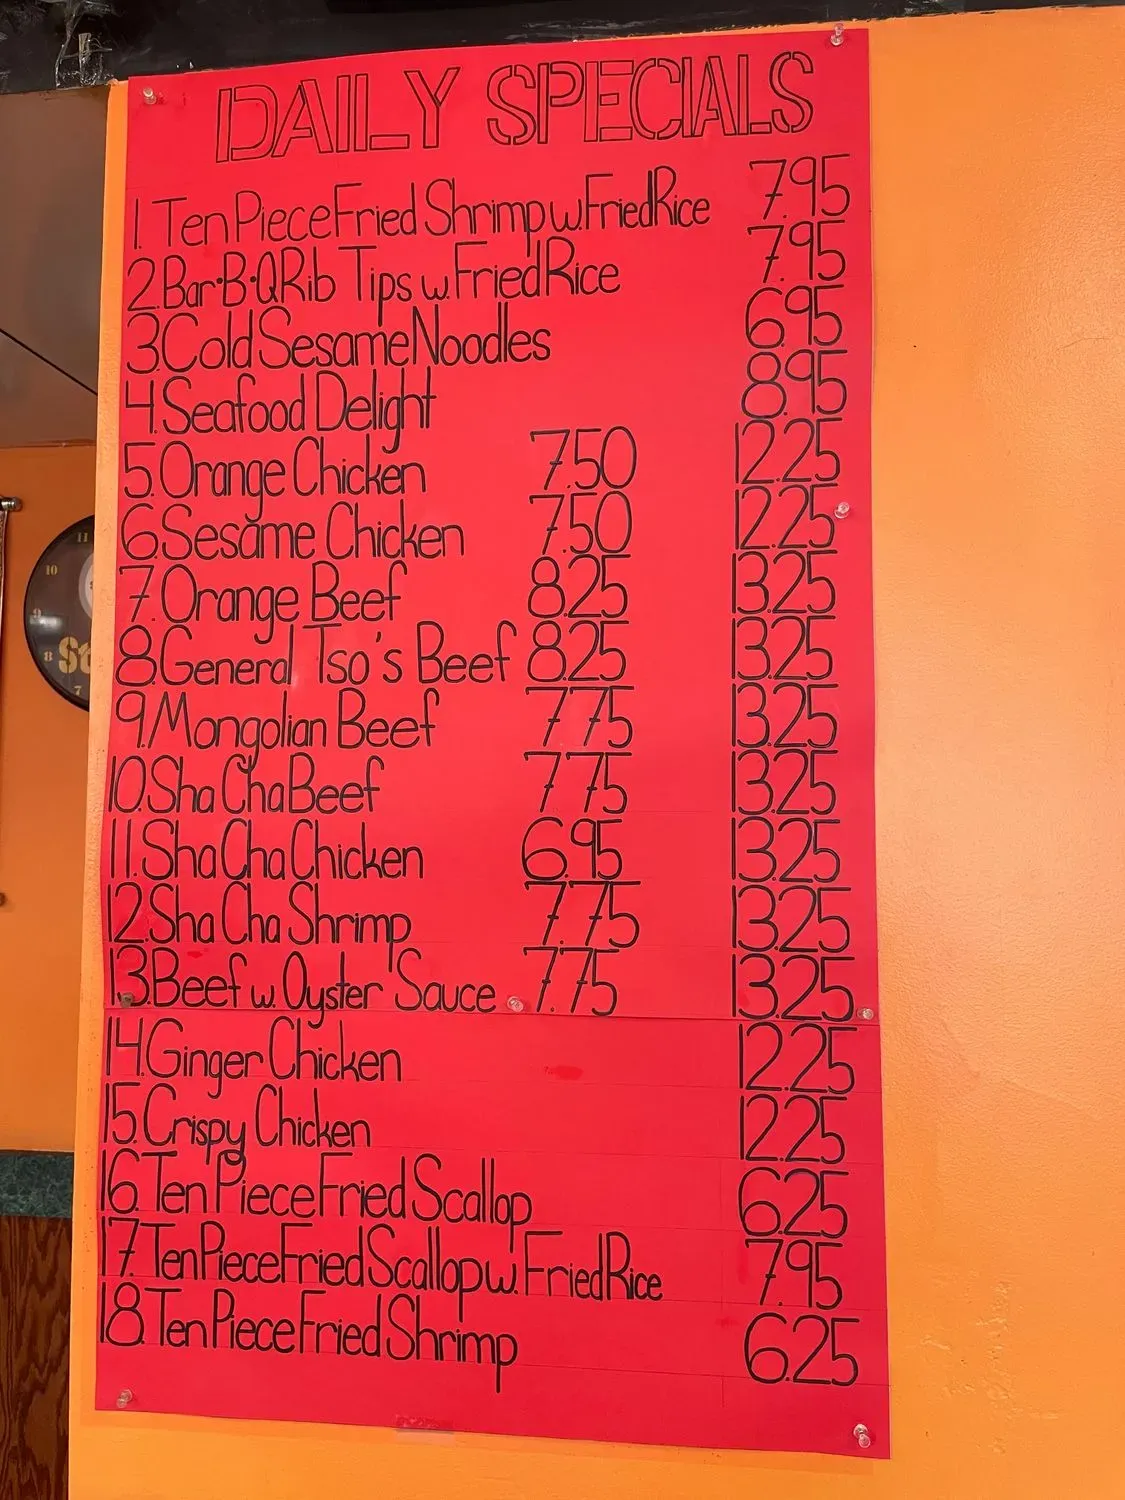 DAILY SPECIALS
1. Ten Piece Fried Shrimp w. Fried Rice 7.95
2. Bar·B·Q Rib Tips w. Fried Rice 7.95
3. Cold Sesame Noodles 6.95
4. Seafood Delight 8.95
5. Orange Chicken 7.50 12.25
6. Sesame Chicken 7.50 12.25
7. Orange Beef 8.25 13.25
8. General Tso's Beef 8.25 13.25
9. Mongolian Beef 7.75 13.25
10. Sha Cha Beef 7.75 13.25
11. Sha Cha Chicken 6.95 13.25
12. Sha Cha Shrimp 7.75 13.25
13. Beef w. Oyster Sauce 7.75 13.25
14. Ginger Chicken 12.25
15. Crispy Chicken 12.25
16. Ten Piece Fried Scallop 6.25
17. Ten Piece Fried Scallop w. Fried Rice 7.95
18. Ten Piece Fried Shrimp 6.25
11
10
9
8
7